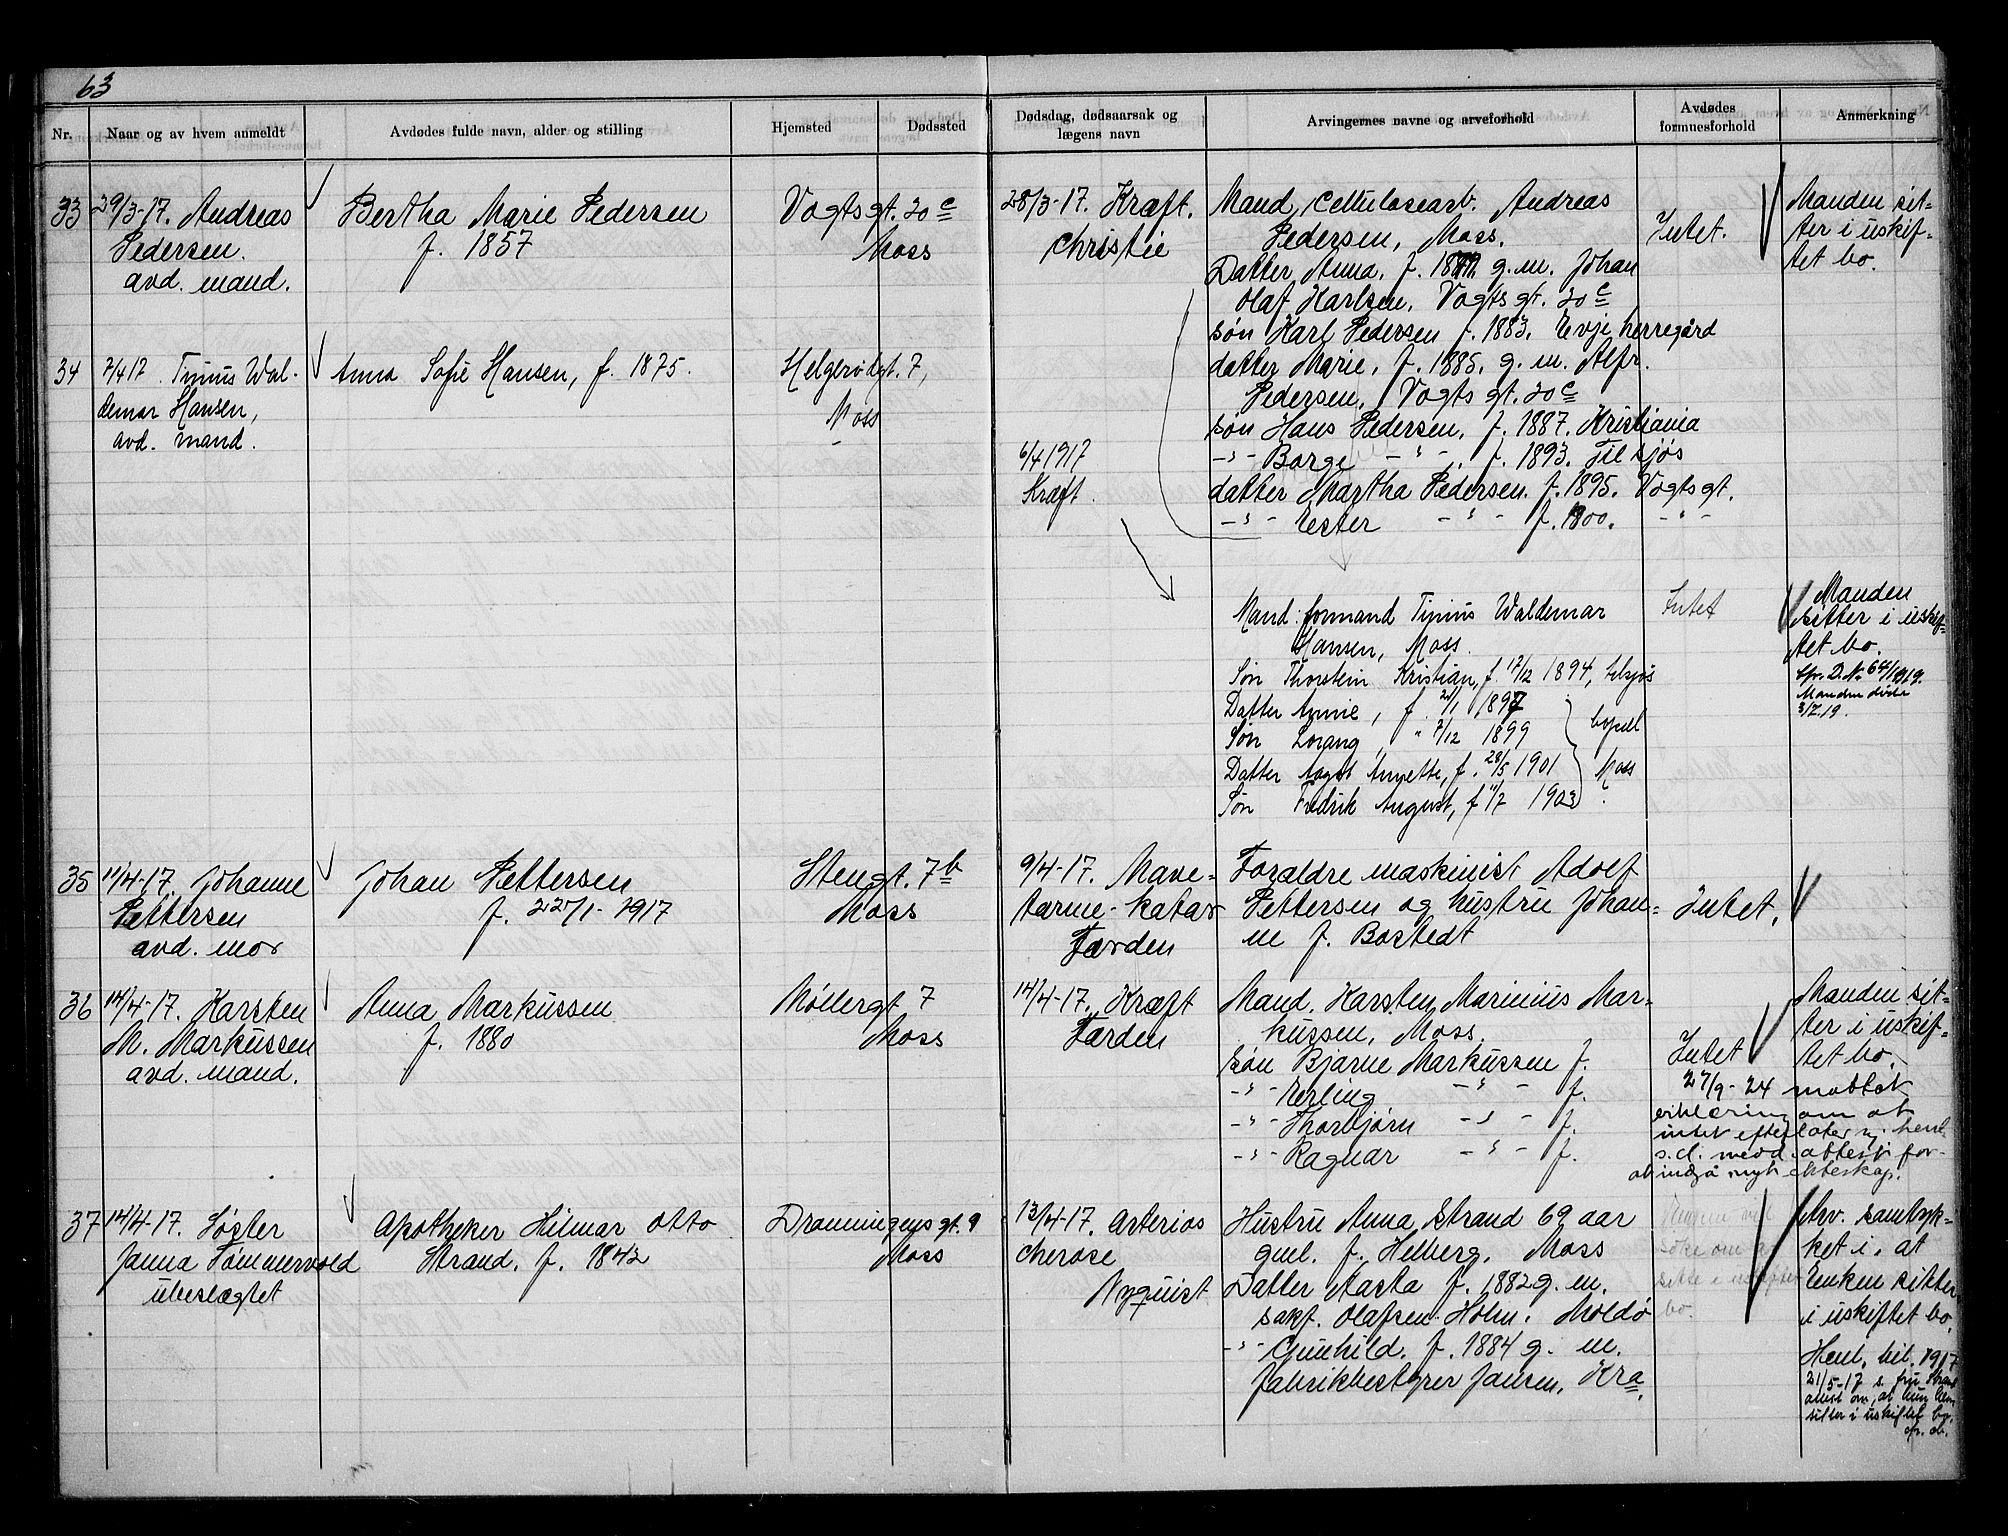 63
Nr.
Naar og av hvem anmeldt
Avdødes fulde navn, alder og stilling
Hjemsted
Dødssted
Dødsdag, dødsaarsak og
lægens navn
Arvingernes navne og arveforhold
Avdødes
formuesforhold
Anmerkning
33
29/3-17. Andreas
Pedersen.
avd. mand.
Bertha Marie Pedersen
f. 1857
Vogtsgt. 20 c
Moss
28/3-17. Kræft.
Christie
Mand cellulosearb. Andreas
Pedersen, Moss.
Datter Anna, f. g.m. Johan
Olaf Karlsen, Vogtsgt. 20 c
søn Karl Pedersen f. 1883. Evje herregård
datter Marie, f. 1885. g. m. Alfr.
Pedersen, Vogtsgt. 20 c
søn Hans Pedersen, f. 1887. Kristiania
-"- Borge -"- , f. 1893. Til sjøs
datter Martha Pedersen. f. 1895. Vogtsgt.
-"- Ester -"- f. 1900. -"-
Intet.
Manden sit-
ter i uskif-
tet bo.
34
7/4 17. Tinius Wal-
demar Hansen,
avd. mand.
Anna Sofie Hansen, f. 1875.
Helgerødgt. 7,
Moss
6/4 1917
Kræft.
Mand: formand Tinius Waldemar
Hansen, Moss.
Søn Thorstein Kristian, f. 17/12 1894, tilsjøs
Datter Annie, f. 2/1 1897
Søn Lorang, " 7/12 1899
Datter Aagot Annette, f. 28/5 1901
Søn Fredrik August, f 11/7 1903
bopæl
Moss
Intet
Manden
sitter i uskif-
tet bo.
Cfr. D. No 64/1919.
Manden døde
3/7.19.
35
11/4-17. Johanne
Pettersen
avd. mor
Johan Pettersen
f. 22/1-1917
Stengt. 7 b
Moss
9/4-17. Mave-
tarme-katar
Færden
Forældre maskinist Adolf
Pettersen og hustru Johan-
ne f. Bostedt
Intet.
36
14/4-17. Karsten
M. Markussen
avd. mand.
Anna Markussen
f. 1880
Møllergt 7
Moss
14/4-17. Kræft
Færden
Mand. Karsten Marinius Mar-
kussen, Moss.
søn Bjarne Markussen f.
-"- Erling -"- f.
-"- Thorbjørn -"- f.
-"- Ragnar -"- f.
Intet
Manden sit-
ter i uskif-
tet bo.
27/9-24 mottat
erklæring om at
intet efterlates
s.d. medd. attest for
at indgå nyt ekteskap.
37
14/4-17. Søster
Janna Sømmervold
ubeslægtet
Apotheker Hilmar Otto
Strand. f. 1842
Dronningensgt. 9
Moss
13/4-17. Arterios
cherose
Nyquist
Hustru Anna Strand 69 aar
gml. f. Helberg, Moss
Datter Aasta f. 1882 g. m.
sakf. Olafsen-Holm. Moldø
-"- Gunhild. f. 1884 g. m.
fabrikbestyrer Jansen, Kra.
Enken vil
søke om at
sitte i uskiftet
bo.
Arv. samtyk-
ket i, at
Enken sitter
i uskiftet bo.
Henl. bil. 1917
21/5-17 s. fru Strand
attest om, at hun
sitter i uskiftet bo.